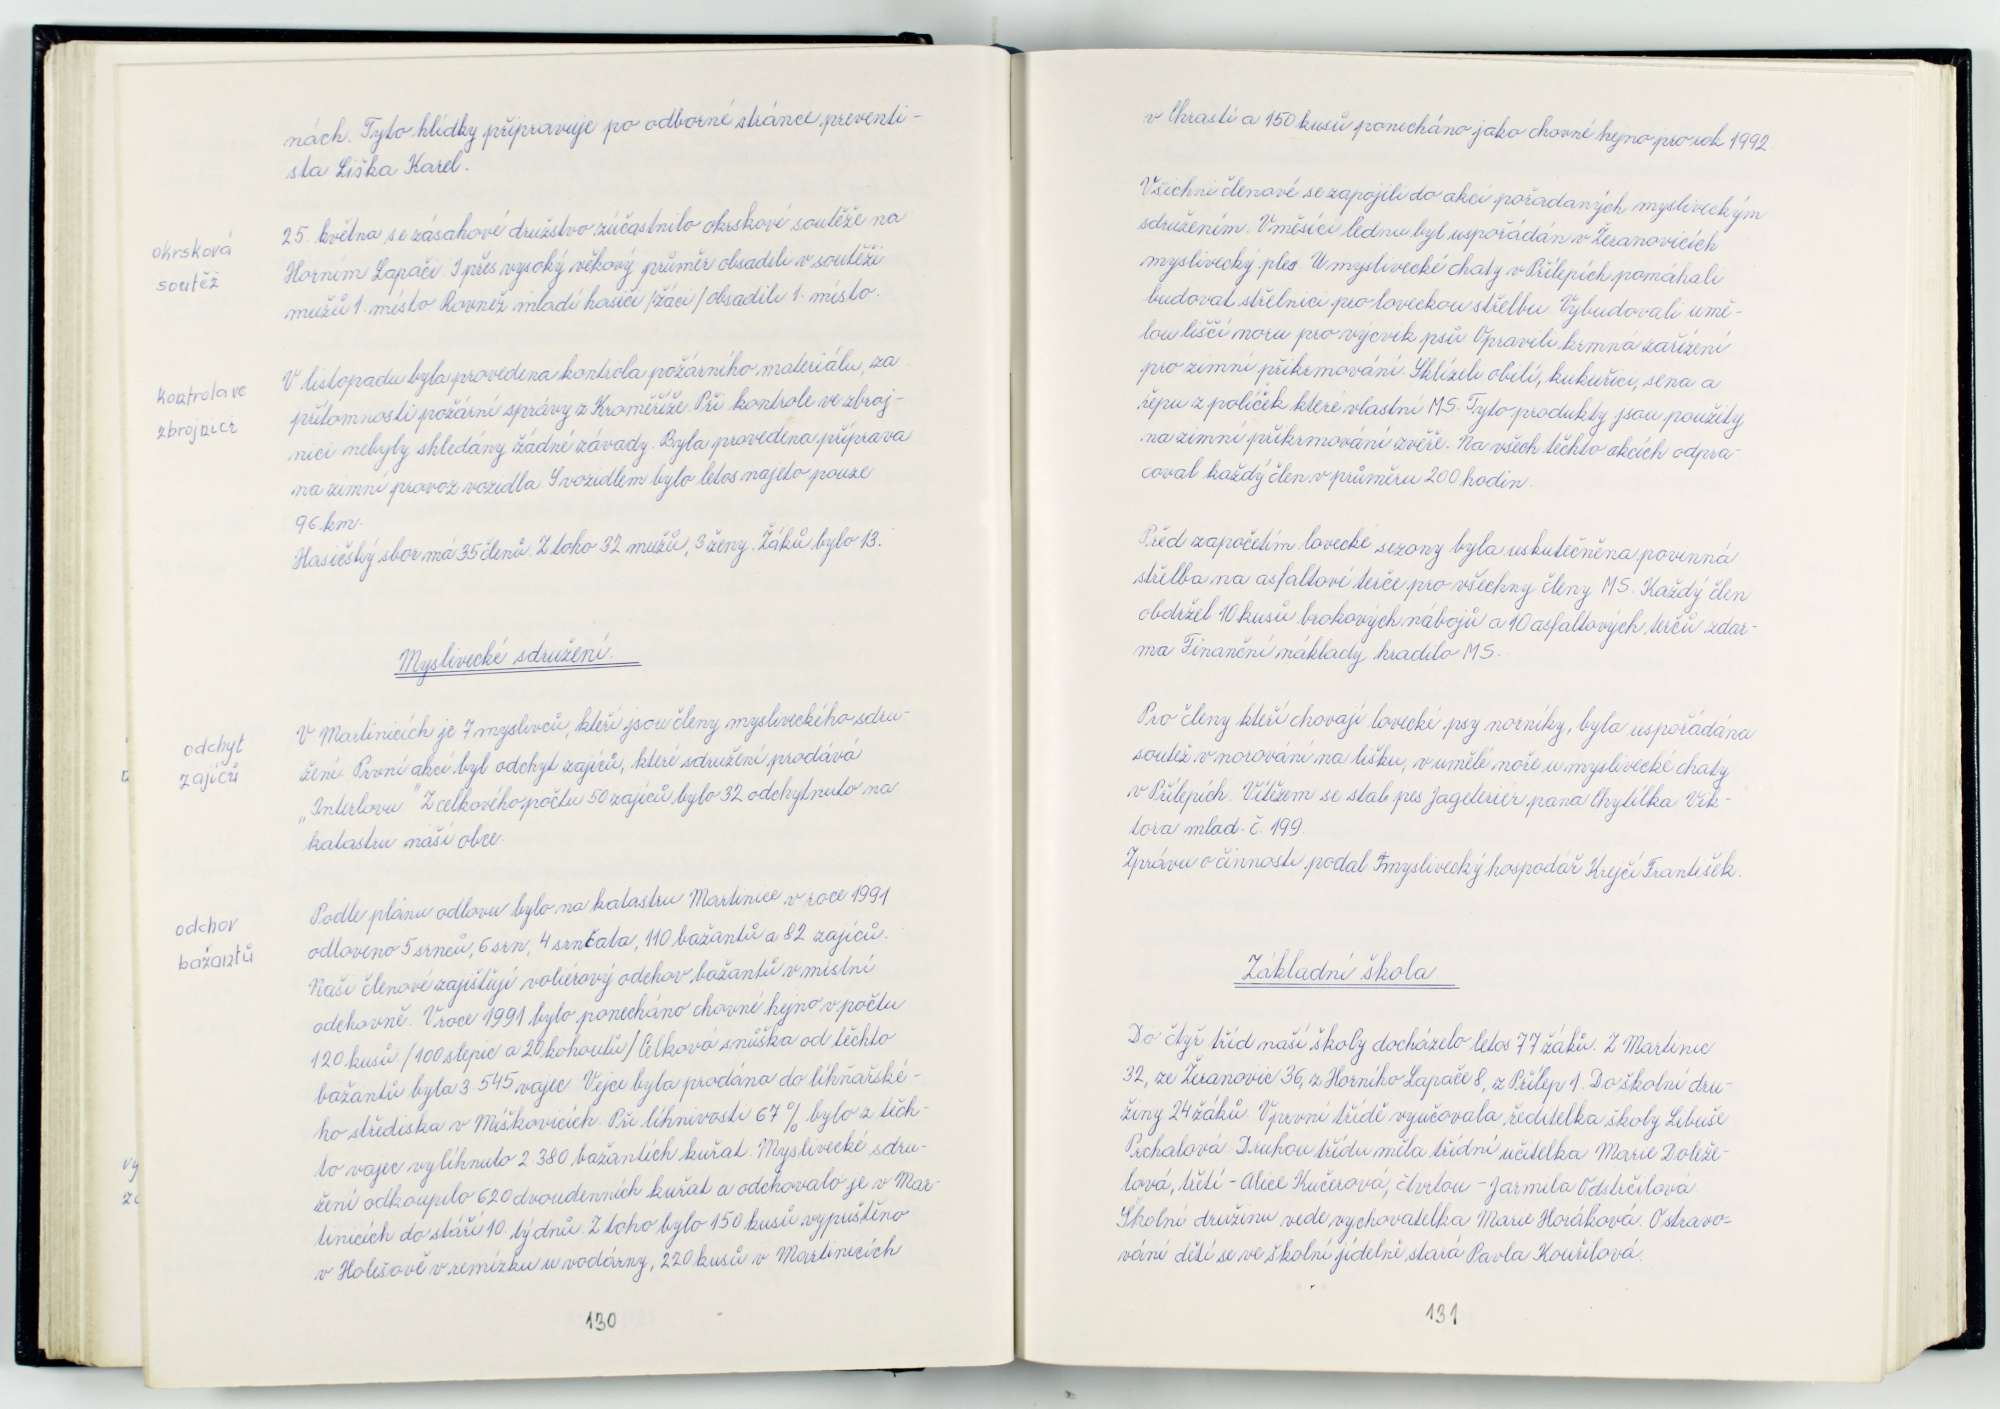 nách. Tyto hlídky připravuje po odborné stránce preventi-
sta Liška Karel.
okrsková
soutěž
25. května se zásahové družstvo zúčastnilo okrskové soutěže na
Horním Lapači. I přes vysoký věkový průměr obsadili v soutěži
mužů 1. místo. Rovněž mladí hasiči /žáci/ obsadili 1. místo.
kontrola ve
zbrojnici
V listopadu byla provedena kontrola požárního materiálu, za
přítomnosti požární správy z Kroměříže. Při kontrole ve zbroj-
nici nebyly shledány žádné závady. Byla provedena příprava
na zimní provoz vozidla. S vozidlem bylo letos najeto pouze
96 km.
Hasičský sbor má 35 členů. Z toho 32 mužů, 3 ženy. Žáků bylo 13.
Myslivecké sdružení.
odchyt
zajíců
V Martinicích je 7 myslivců, kteří jsou členy mysliveckého sdru-
žení. První akcí byl odchyt zajíců, které sdružení prodává
„Interlovu" Z celkového počtu 50 zajíců bylo 32 odchytnuto na
katastru naší obce.
odchov
bažantů
Podle plánu odlovu bylo na katastru Martinice v roce 1991
odloveno 5 srnců, 6 srn, 4 srnčata, 110 bažantů a 82 zajíců.
Naši členové zajišťují voliérový odchov bažantů v místní
odchovně. V roce 1991 bylo ponecháno chovné hejno v počtu
120 kusů /100 slepic a 20 kohoutů/ Celková snůška od těchto
bažantů byla 3 545 vajec. Vejce byla prodána do líhňařské-
ho střediska v Míškovicích. Při líhnivosti 67 % bylo z těch-
to vajec vylíhnuto 2 380 bažantích kuřat. Myslivecké sdru-
žení odkoupilo 620 dvoudenních kuřat a odchovalo je v Mar-
tinicích do stáří 10. týdnů. Z toho bylo 150 kusů vypuštěno
v Holešově v remízku u vodárny, 220 kusů v Martinicích
130
v Chrastí a 150 kusů ponecháno jako chovné hejno pro rok 1992.
Všichni členové se zapojili do akcí pořádaných mysliveckým
sdružením. V měsíci lednu byl uspořádán v Žeranovicích
myslivecký ples. U myslivecké chaty v Přílepích pomáhali
budovat střelnici pro loveckou střelbu. Vybudovali umě-
lou liščí noru pro výcvik psů. Opravili krmná zařízení
pro zimní přikrmování. Sklízeli obilí, kukuřici, sena a
řepu z políček které vlastní MS. Tyto produkty jsou použity
na zimní přikrmování zvěře. Na všech těchto akcích odpra-
coval každý člen v průměru 200 hodin.
Před započetím lovecké sezony byla uskutečněna povinná
střelba na asfaltové terče pro všechny členy MS. Každý člen
obdržel 10 kusů brokových nábojů a 10 asfaltových terčů zdar-
ma. Finanční náklady hradilo MS.
Pro členy kteří chovají lovecké psy norníky, byla uspořádána
soutěž v norování na lišku, v umělé noře u myslivecké chaty
v Přílepích. Vítězem se stal pes Jagdteriér pana Chytilka Vik-
tora mlad. č. 199.
Zprávu o činnosti podal myslivecký hospodář Krejčí František.
Základní škola
Do čtyř tříd naší školy docházelo letos 77 žáků. Z Martinic
32, ze Žeranovic 36, z Horního Lapače 8, z Přílep 1. Do školní dru-
žiny 24 žáků. V první třídě vyučovala ředitelka školy Libuše
Prchalová. Druhou třídu měla třídní učitelka Marie Doleže-
lová, třetí - Alice Kučerová, čtvrtou - Jarmila Odstrčilová.
Školní družinu vede vychovatelka Marie Horáková. O stravo-
vání dětí se ve školní jídelně stará Pavla Kouřilová.
131